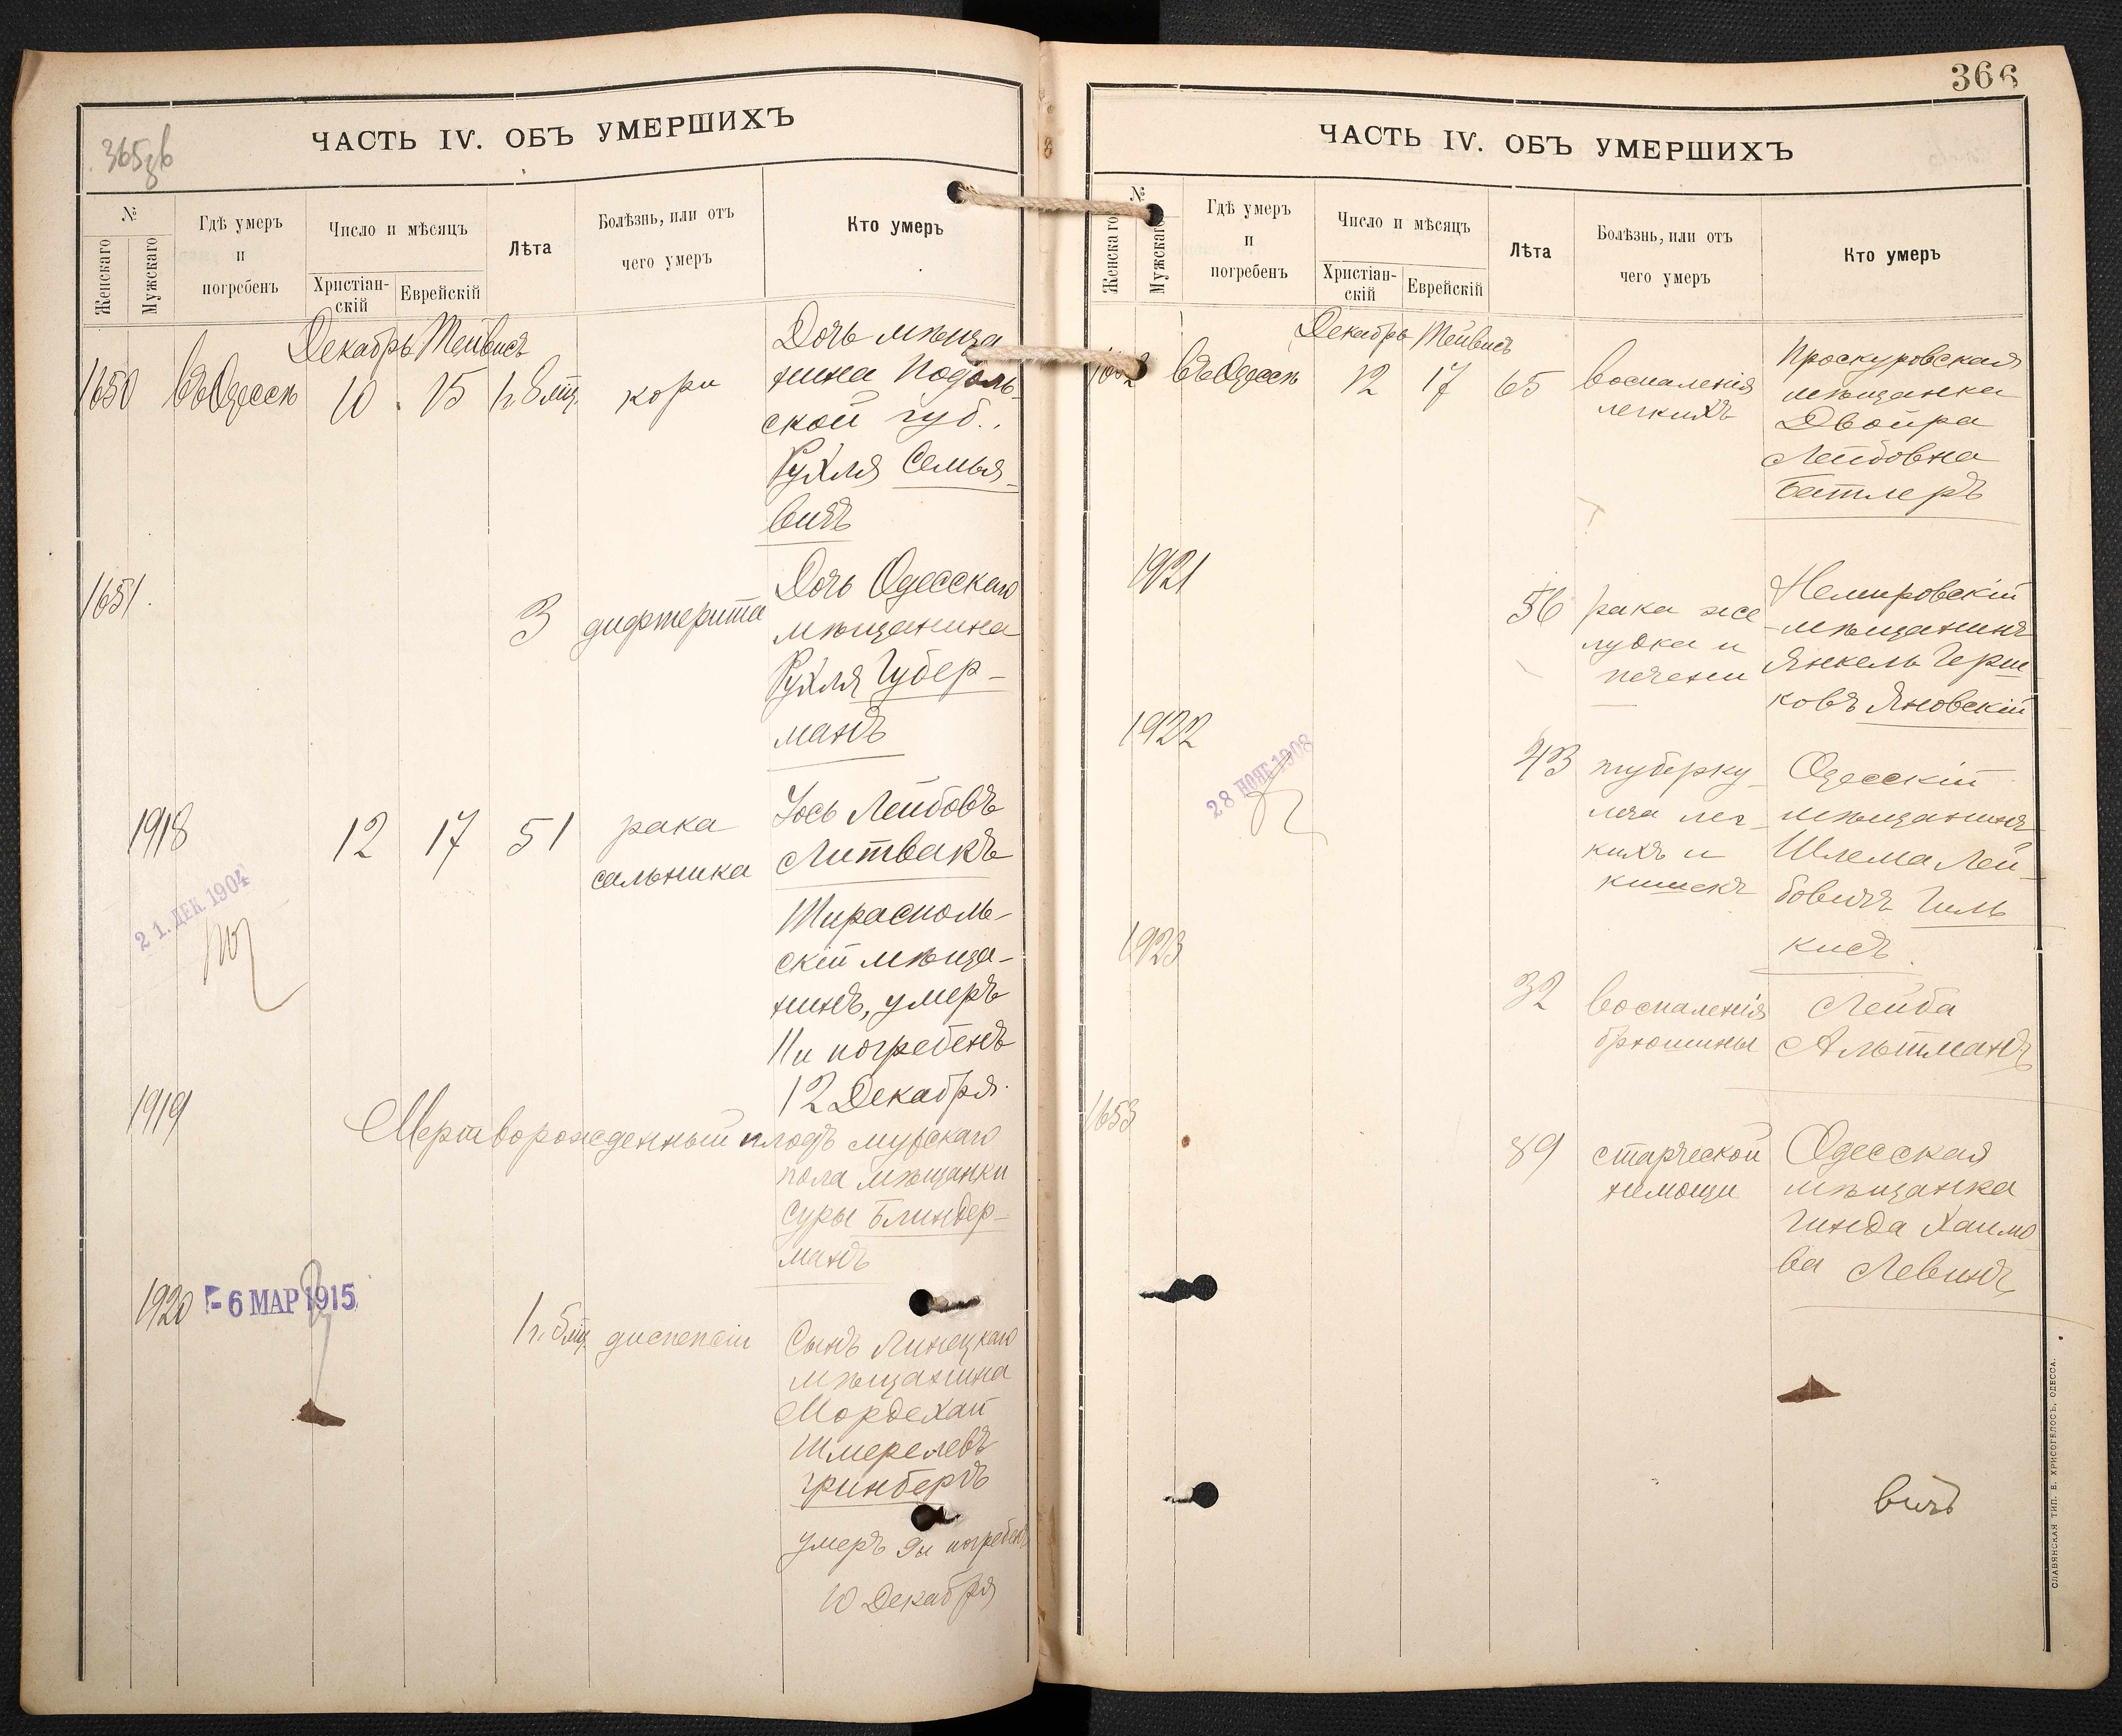 365об
ЧАСТЬ IV. ОБЪ УМЕРШИХЪ
№
Женскаго
Мужскаго
Гдѣ умеръ
и
погребенъ
Число и мѣсяцъ
Христіан-
скій
Еврейскій
Лѣта
Болѣзнь, или отъ
чего умеръ
Кто умеръ
Декабрь Тейвисъ
1650 въ Одессѣ 10 15 1 г. 8 мц. кори
Дочь мѣща
нина Подоль-
ской губ.,
Рухля Семья-
вичъ
1651. 3 дифтерита
Дочь Одесскаго
мѣщанина
Рухля Губер-
манъ
1918 12 17 51 рака
сальника
Іось Лейбовъ
Литвакъ
Тираспопь-
скій мѣща-
нинъ, умеръ
11 и погребенъ
12 Декабря.
21. ДЕК. 1904
1919 Мертворожденный плодъ мужскаго
пола мѣщанки
Суры Блиндер-
манъ
1920 -6 МАР 1915
1 г. 5 мц. диспепсіи
Сынъ Линецкаго
мѣщанина
Мордехай
Шмерелевъ
Гринбергъ
умеръ 9 и погребенъ
10 Декабря
366
ЧАСТЬ IV. ОБЪ УМЕРШИХЪ
№
Женскаго
Мужскаго
Гдѣ умеръ
и
погребенъ
Число и мѣсяцъ
Христіан-
скій
Еврейскій
Лѣта
Болѣзнь, или отъ
чего умеръ
Кто умеръ
Декабрь Тейвисъ
1652 въ Одессѣ 12 17 65 воспаленія
легкихъ
Проскуровская
мѣщанка
Двойра
Лейбовна
Батлеръ
1921 56 рака же
лудка и
печени
Немировскій
мѣщанинъ
Янкель Герш
ковъ Яновскій
1922 43 туберку-
леза лег-
кихъ и
кишекъ
28 НОЯБ 1908
Одесскій
мѣщанинъ
Шлема Лей-
бовичъ Гиль
кисъ.
1923 32 воспаленія
брюшины
Лейба
Альтманъ
1653 89 старческой
немощи
Одесская
мѣщанка
Гинда Хаимо
ва Левинъ
вичъ
СЛАВЯНСКАЯ ТИП. Е. ХРИСОГЕЛОСЪ, ОДЕССА.